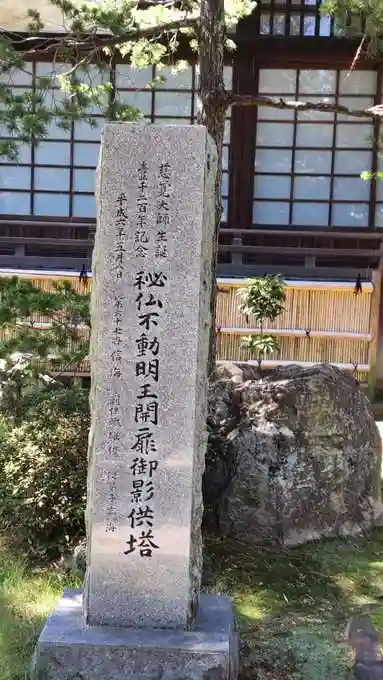 慈覚大師生誕
壱千二百年記念
秘仏不動明王開扉御影供塔
平成六年五月八日
第六十七世 信海